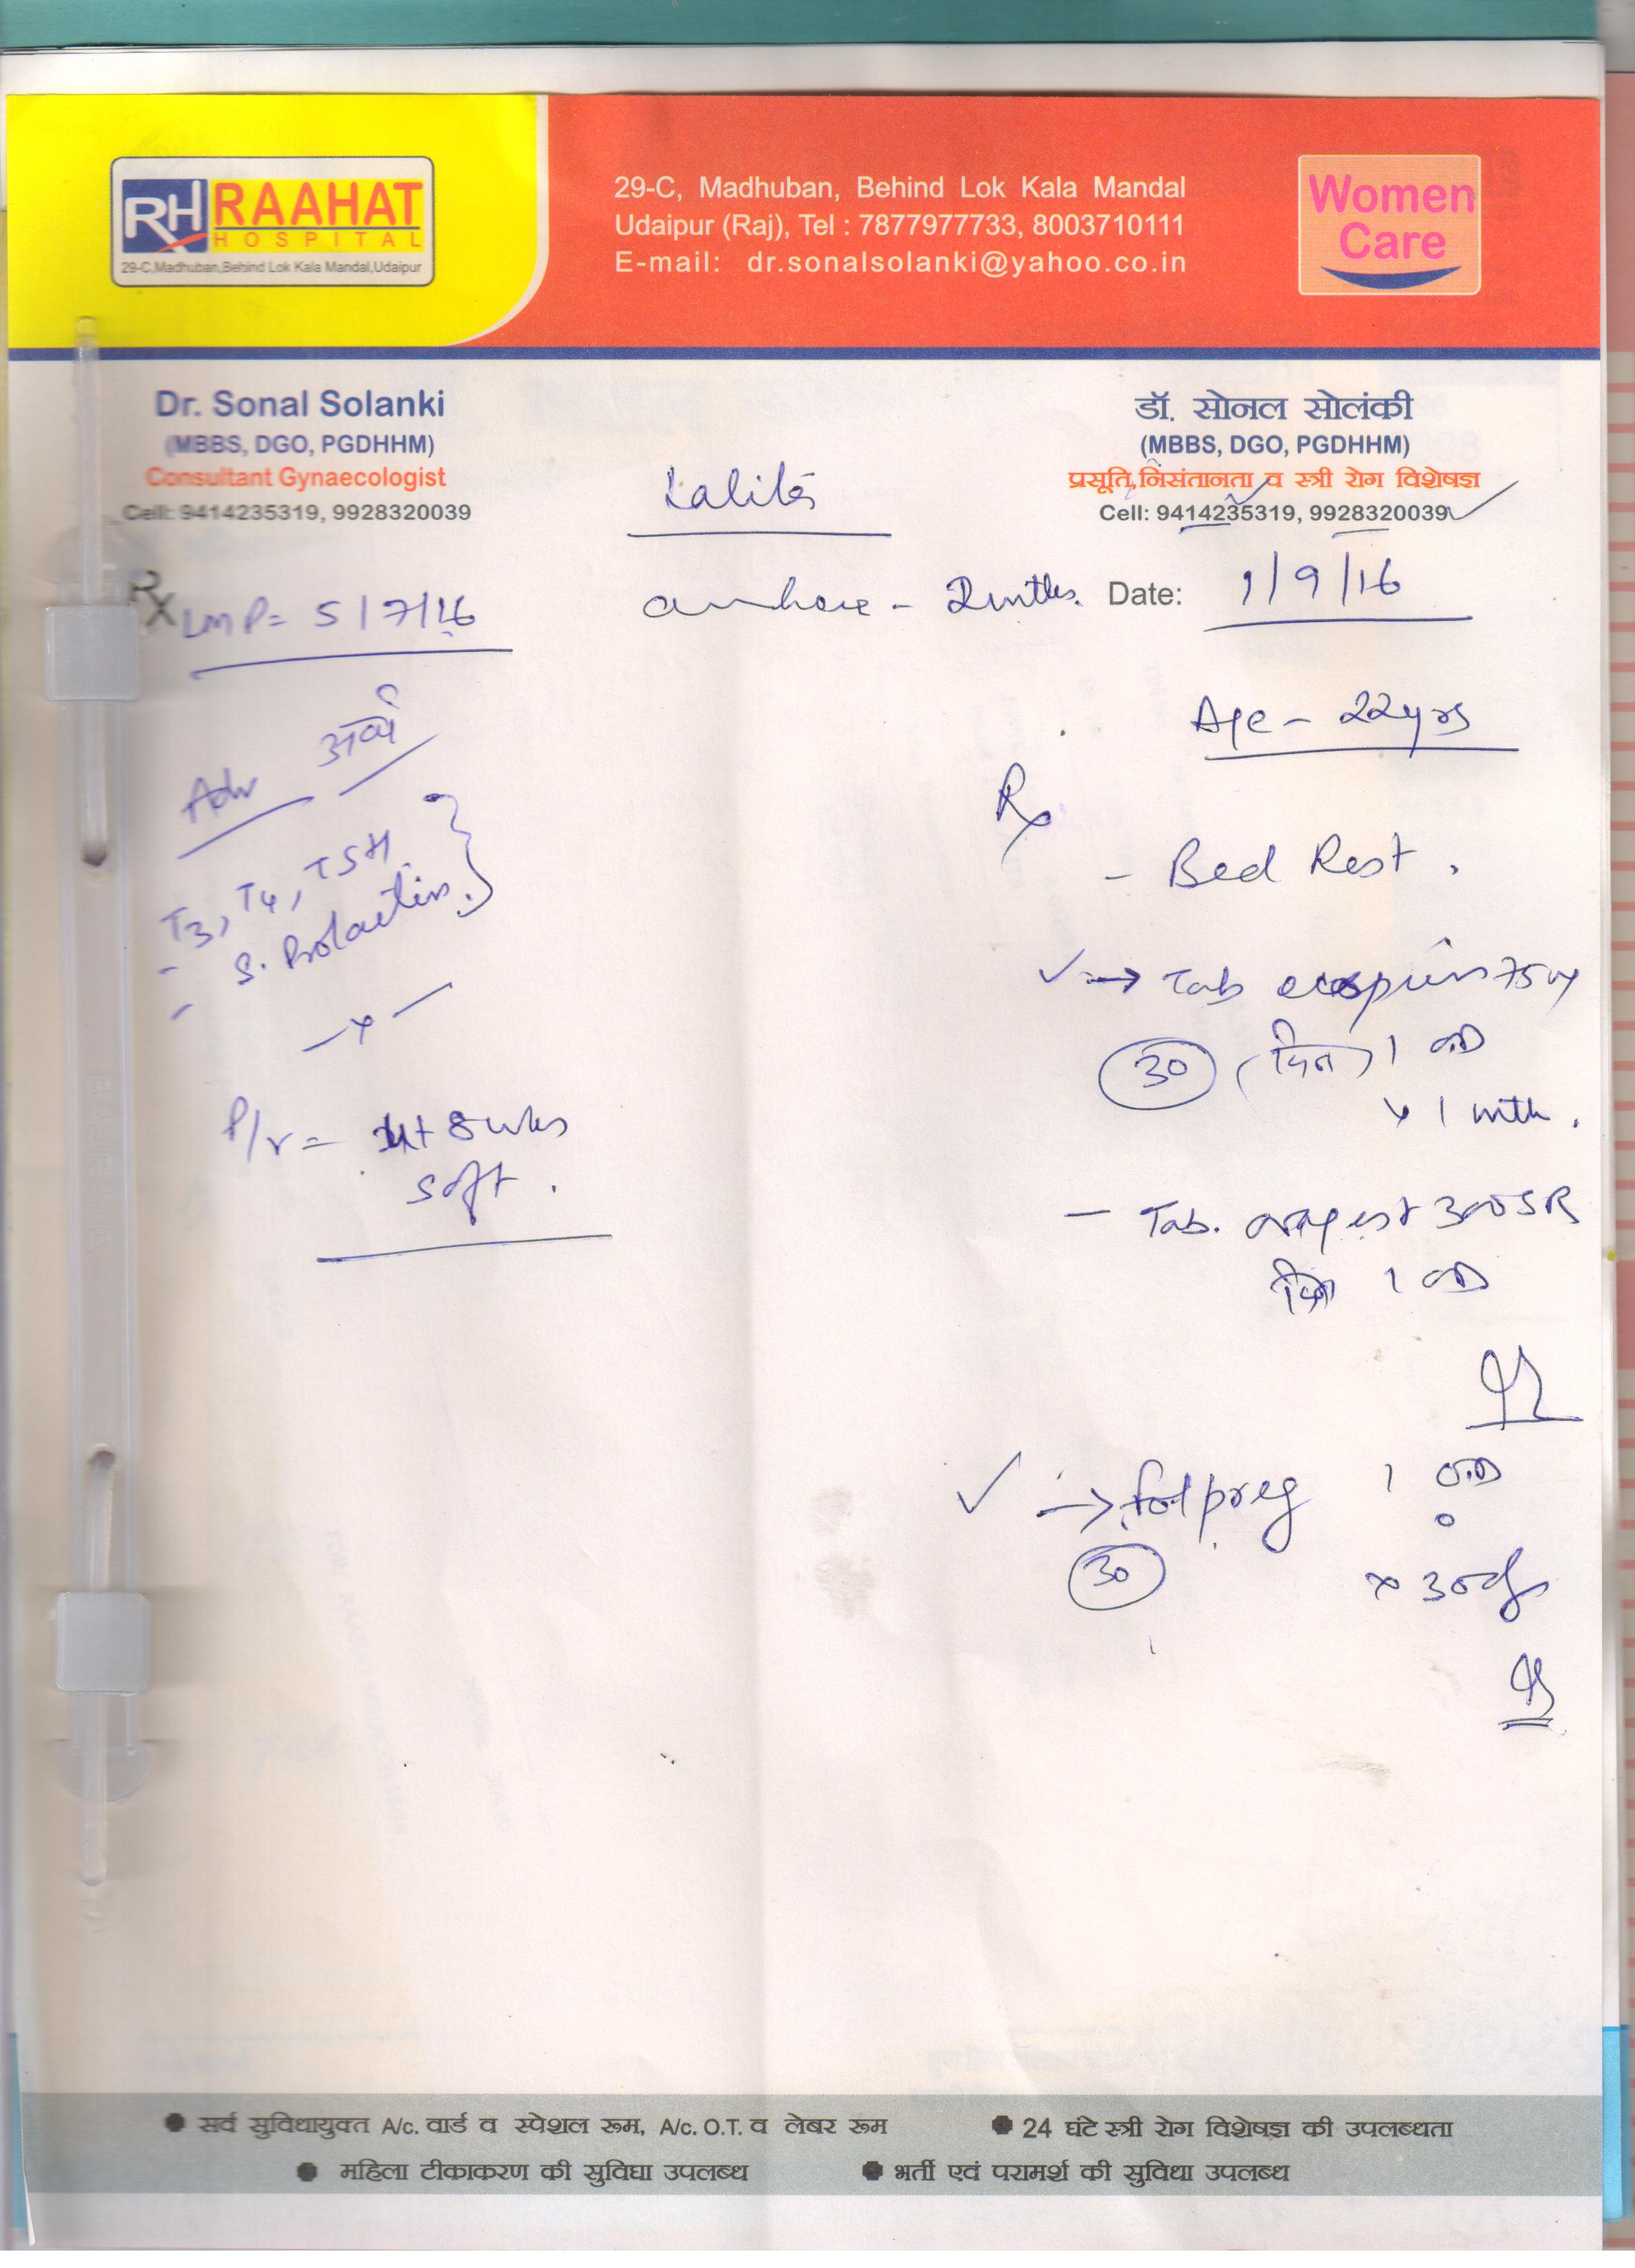 RH RAAHAT
HOSPITAL
29-C,Madhuban,Behind Lok Kala Mandal,Udaipur
29-C, Madhuban, Behind Lok Kala Mandal
Udaipur (Raj), Tel : 7877977733, 8003710111
E-mail: dr.sonalsolanki@yahoo.co.in
Women
Care
Dr. Sonal Solanki
(MBBS, DGO, PGDHHM)
Consultant Gynaecologist
Cell: 9414235319, 9928320039
डॉ. सोनल सोलंकी
(MBBS, DGO, PGDHHM)
प्रसूति,निसंतानता व स्त्री रोग विशेषज्ञ
Cell: 9414235319, 9928320039
Lalita
Rx LMP= 5/7/16
- 2 mths. Date: 1/9/16
Age - 22yrs
Adv
T3, T4, TSH
- S. Prolactin.
-x-
P/v = 8 wks
soft.
Rx
- Bed Rest.
→ Tab ecosprin 75 mg
30 (दिन) 1 OD
x 1 mth.
- Tab. 300SR
दिन 1 OD
→ folpreg 1 O.D
30 x 30 dys
● सर्व सुविधायुक्त A/c. वार्ड व स्पेशल रूम, A/c. O.T. व लेबर रूम ● 24 घंटे स्त्री रोग विशेषज्ञ की उपलब्धता
● महिला टीकाकरण की सुविधा उपलब्ध ● भर्ती एवं परामर्श की सुविधा उपलब्ध